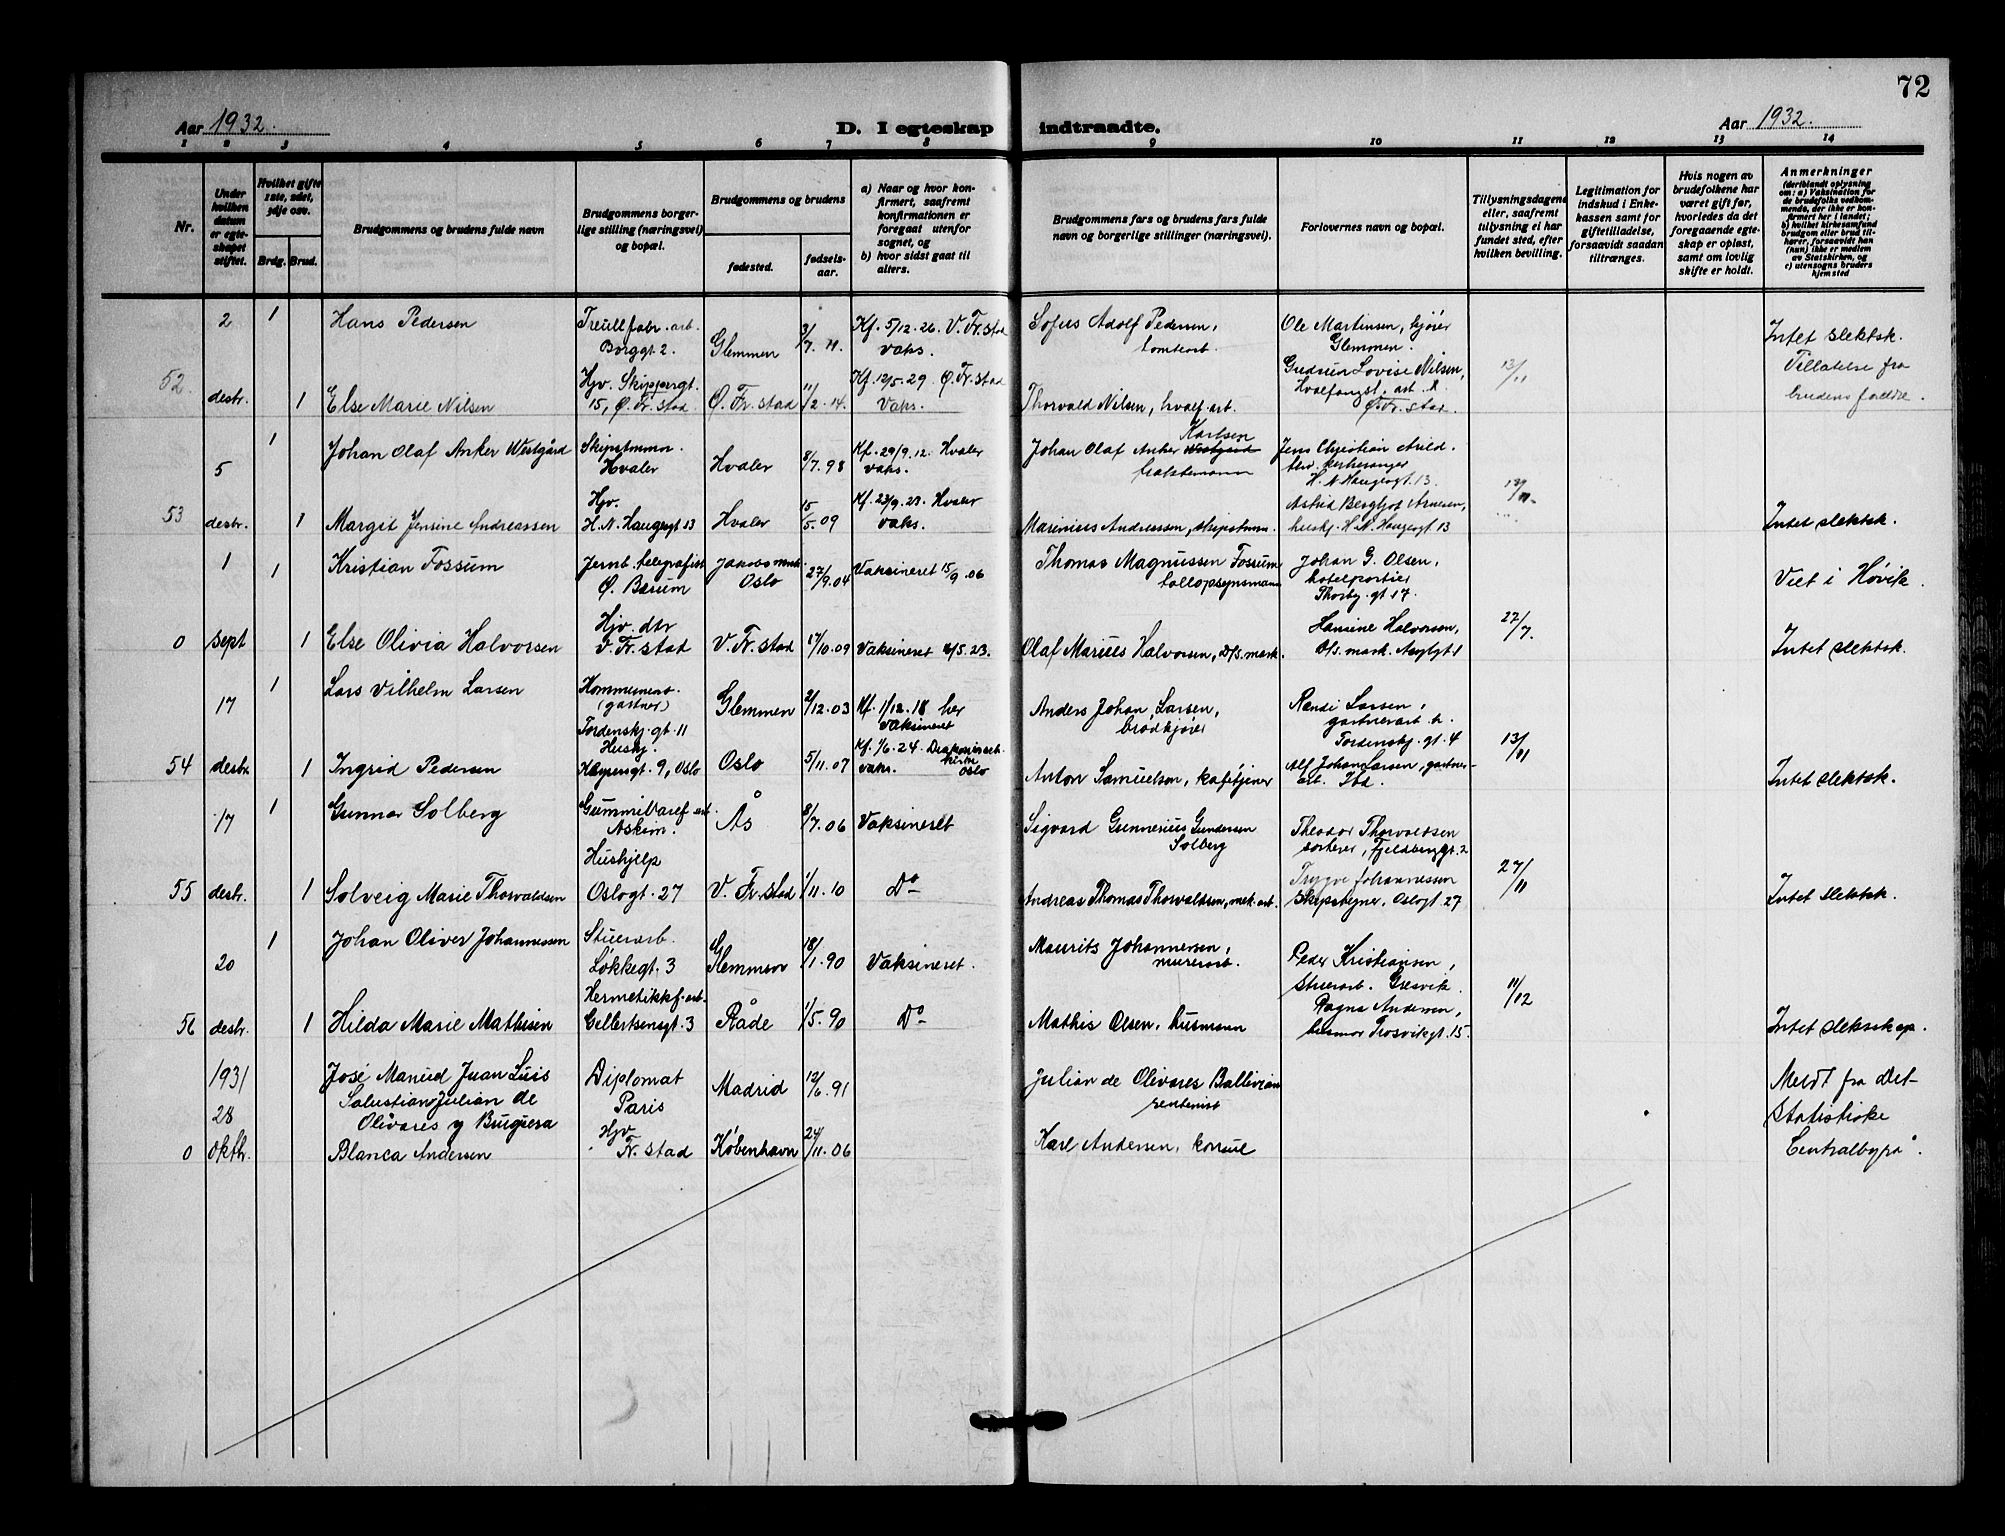 72
Aar 1932.
D. I egteskap indtraadte.
Aar 1932.
1 2 3 4 5 6 7 8 9 10 11 12 13 14
Nr.
Under hvilken datum er egteskapet stiftet.
Hvilket gifte 1ste, 2det, 3dje osv.
Brdg. Brud.
Brudgommens og brudens fulde navn
Brudgommens borgerlige stilling (næringsvei) og bopæl.
Brudgommens og brudens
fødested.
fødselsaar.
a) Naar og hvor konfirmert, saafremt konfirmationen er foregaat utenfor sognet, og
b) hvor sidst gaat til alters.
Brudgommens fars og brudens fars fulde navn og borgerlige stillinger (næringsvei).
Forlovernes navn og bopæl.
Tillysningsdagene eller, saafremt tillysning ei har fundet sted, efter hvilken bevilling.
Legitimation for indskud i Enkekassen samt for giftetilladelse, forsaavidt saadan tiltrænges.
Hvis nogen av brudefolkene har været gift før, hvorledes da det foregaaende egteskap er opløst, samt om lovlig skifte er holdt.
Anmerkninger
(deriblandt oplysning om: a) Vaksination for de brudefolks vedkommende, der ikke er konfirmert her i landet; b) hvilket kirkesamfund brudgom eller brud tilhører, forsaavidt han (hun) ikke er medlem av Statskirken, og c) utensogns bruders hjemsted
2 1 Hans Pedersen
Treullfabr. arb.
Borggt. 2.
Glemmen 3/7. 11
Kf. 5/12. 26. V. Fr.stad
vaks.
Sofus Adolf Pedersen,
tomtearb.
Ole Martinsen, kjører
Glemmen.
Intet slektsk.
Tillatelse fra
brudens foreldre.
52 desbr. 1 Else Marie Nilsen
Hjv. Skippergt.
15, Ø. Fr. stad
Ø. Fr. stad 11/2. 14.
Kf. 12/5. 29 Ø. Fr. stad
Vaks.
Thorvald Nilsen, hvalf. arb.
Gudrun Lovise Nilsen,
Hvalfangst. arb. h.
Ø. Fr. stad.
13/11
5 1 Johan Olaf Anker Westgård
Skipstømm.
Hvaler
Hvaler 8/7. 98
Kf. 29/9. 12. Hvaler
vaks.
Johan Olaf Anker Westgård Karlsen
Jens Christian Auld.
kirkesanger
H. N. Haugesgt. 13.
53 desbr. 1 Margit Jensine Andreassen
Hjv.
H. N. Haugesgt 13
Hvaler 15/5. 09
Kf. 23/9. 23. Hvaler
vaks.
Marinius Andreassen, skipstømm.
Astrid Bergljot Arnesen,
huskj. H. N. Haugesgt. 13
Intet slektsk.
1 1 Kristian Fossum
Jernb. telegrafist
Ø. Bærum
Jakobs menh.
Oslo
27/9. 04
Vaksineret 15/9. 06
Thomas Magnussen Fossum
tolloppsynsmann
Johan G. Olsen,
hotelportier
Thorbj. gt 17.
Viet i Høvik.
0 sept 1 Else Olivia Halvorsen
Hjv. dtr
V. Fr. stad
V. Fr. stad 17/10. 09
Vaksineret 16/5. 23.
Olaf Marius Halvorsen, D/S. mask.
Hansine Halvorsen,
D/s. mask. Asylgt 1
22/7.
Intet slektsk.
17 1 Lars Vilhelm Larsen
Kommunearb.
(gartner)
Tordenskj. gt. 11
Glemmen 2/12. 03
Kf. 1/12. 18 her
Vaksineret
Anders Johan Larsen,
brødkjører
Randi Larsen,
gartnerarb. h.
Tordenskj. gt. 4
54 desbr. 1 Ingrid Pedersen
Huskj.
Kaysersgt. 9, Oslo
Oslo 5/11. 07
Kf. 1/6. 24. Diakonissek.
kirke
vaks. Oslo
Anton Samuelson, kafétjener
Alf Johan Larsen, gartner-
arb. Ibd.
13/11
Intet slektsk.
17 1 Gunnar Solberg
Gummivaref. arb
Askim.
Ås 8/7. 06
Vaksineret
Sigvard Gunnerius Gundersen
Solberg
Theodor Thorvaldsen
sorterer, Fjeldberggt. 2
55 desbr. 1 Solveig Marie Thorvaldsen
Hushjelp
Oslogt. 27
V. Fr. stad 1/11. 10
Do
Andreas Thomas Thorvaldsen, mek. arb.
Trygve Johannessen
Skipsbygner, Oslogt 27
27/11
Intet slektsk.
20 1 Johan Oliver Johannessen
Stuerarb.
Løkkegt. 3
Glemmen 18/1. 90
Vaksineret.
Maurits Johannesen,
murerarb.
Peder Kristiansen,
Stuerarb. Gresvik.
56 desbr. 1 Hilda Marie Mathisen
Hermetikkf. arb.
Gellertsensgt. 3
Råde 1/5. 90
Do
Mathis Olsen, husmann
Ragna Andersen,
husmor Trosvikgt. 15.
11/12
Intet slektskap.
1931
28
José Manuel Juan Luis
Salustian Julian de
Olivares y Bruguera
Diplomat
Paris
Madrid 12/6. 91
Julian de Olivares Ballivian
rentenist
Meldt fra Det
Statistiske
Centralbyrå.
0 oktbr. Blanca Andersen
Hjv
Fr. stad
København 24/11. 06
Karl Andersen, konsul